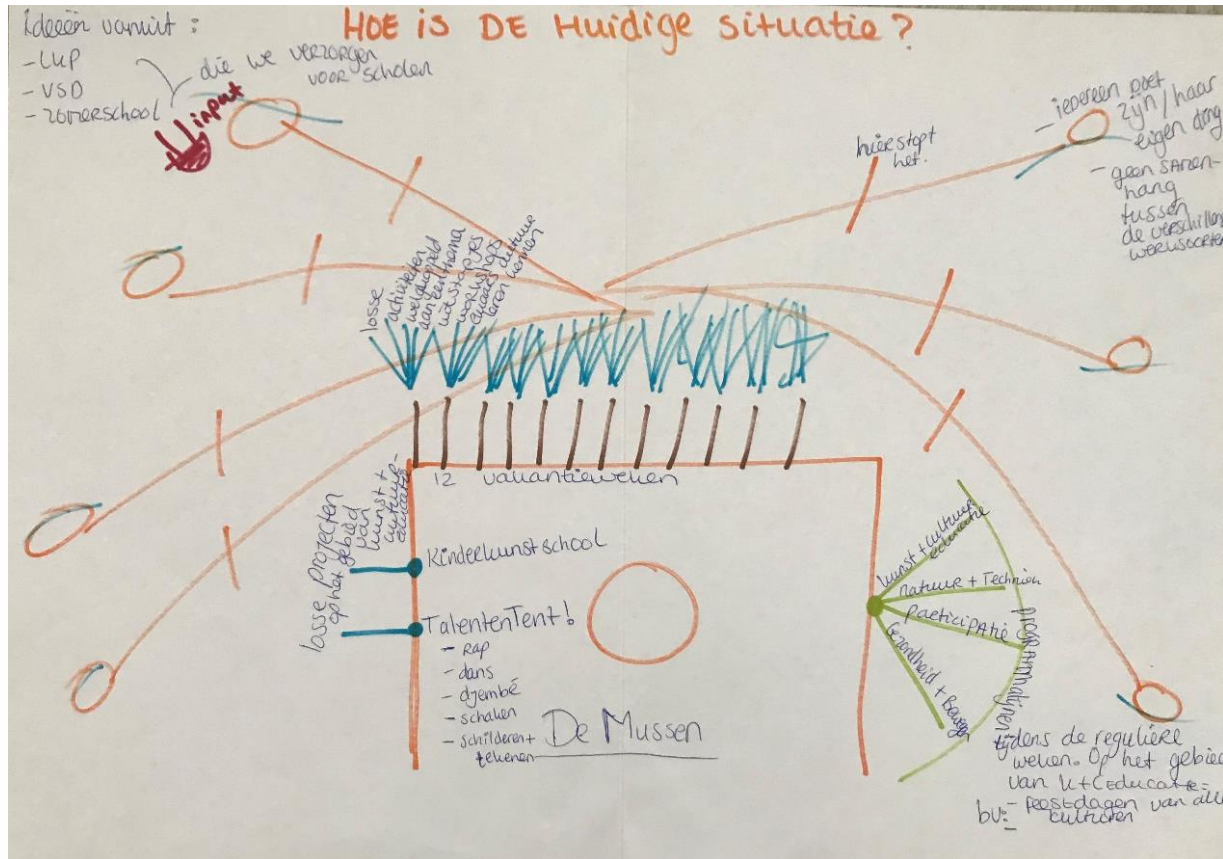 HOE iS DE Huidige situatie?
Ideeën vanuit :
- LKP
- VSD
- zomerschool
die we verzorgen
voor scholen
input
hier stopt
het.
- iedereen doet
zijn / haar
eigen ding
- geen samen-
hang
tussen
de verschillen
werksoorten
losse
activiteiten
wel gekoppeld
aan een thema
uitstapjes
workshops
elkaars cultuur
leren kennen
12 vakantieweken
losse projecten
op het gebied
van
kunst +
cultuur-
educatie
Kinderkunstschool
TalentenTent!
- Rap
- dans
- djembé
- schaken
- schilderen +
tekenen
De Mussen
kunst + cultuur
educatie
natuur + Techniek
participatie
Gezondheid + Bewegen
programmalijnen
tijdens de reguliere
weken. Op het gebied
van k+c educatie
bv: - feestdagen van alle
culturen
-